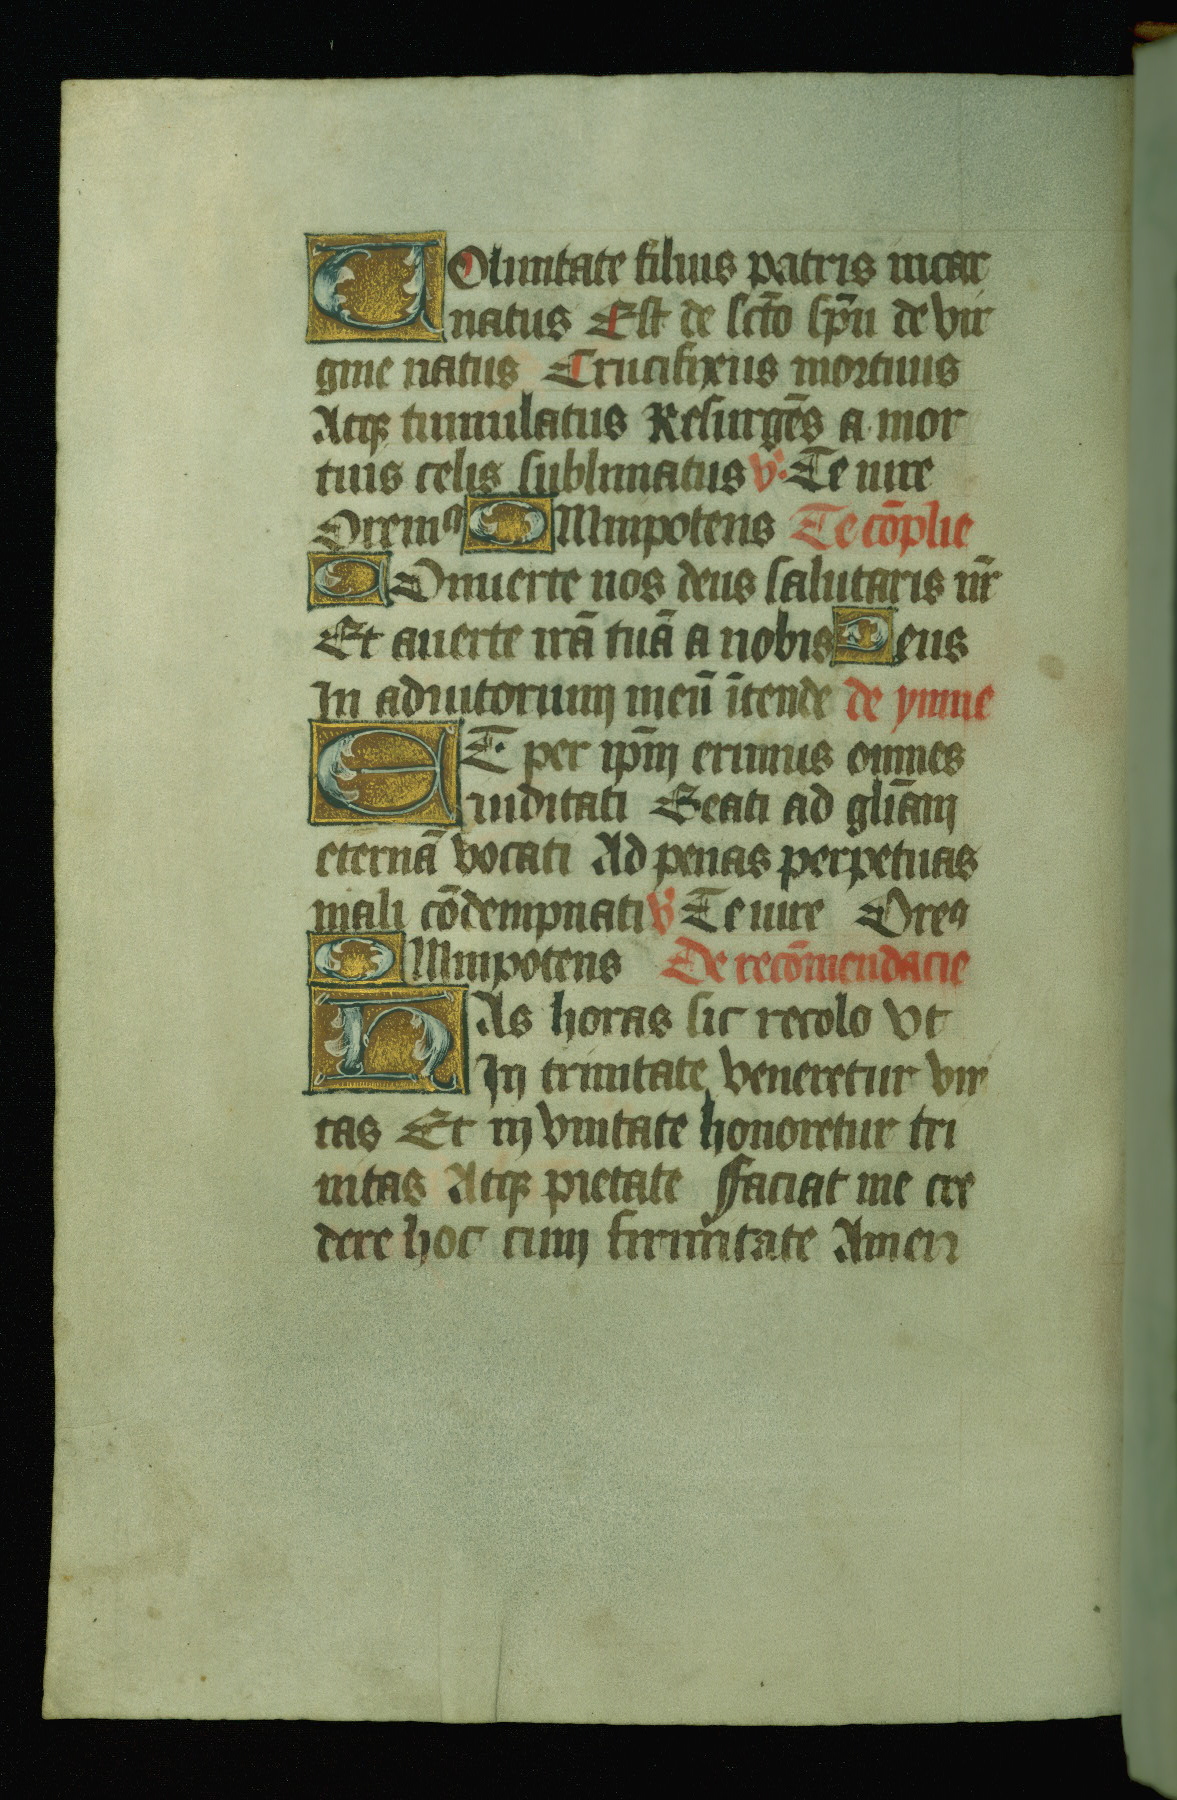 VOluntate filius patris incar
natus Est de scto spu de vir
gine natus Crucifixus mortuus
Atqꝫ tumulatus Resurgēs a mor
tuis celis sublimatus v. Te iure
Oremꝰ OMnipotens Te cōplie
COnuerte nos deus salutaris nr̄
Et auerte irā tuā a nobis Deus
In adiutorium meū ītende de ymne
ET per ip̄m erimus omnes
iuditati Beati ad gliām
eternā vocati Ad penas perpetuas
mali cōdempnati v Te iure Oreꝰ
OMnipotens De recōmendacie
HAs horas sic recolo vt
In trinitate veneretur vni
tas Et in vnitate honoretur tri
nitas Atqꝫ pietate ffaciat me cre
dere hoc cum firmitate Amen